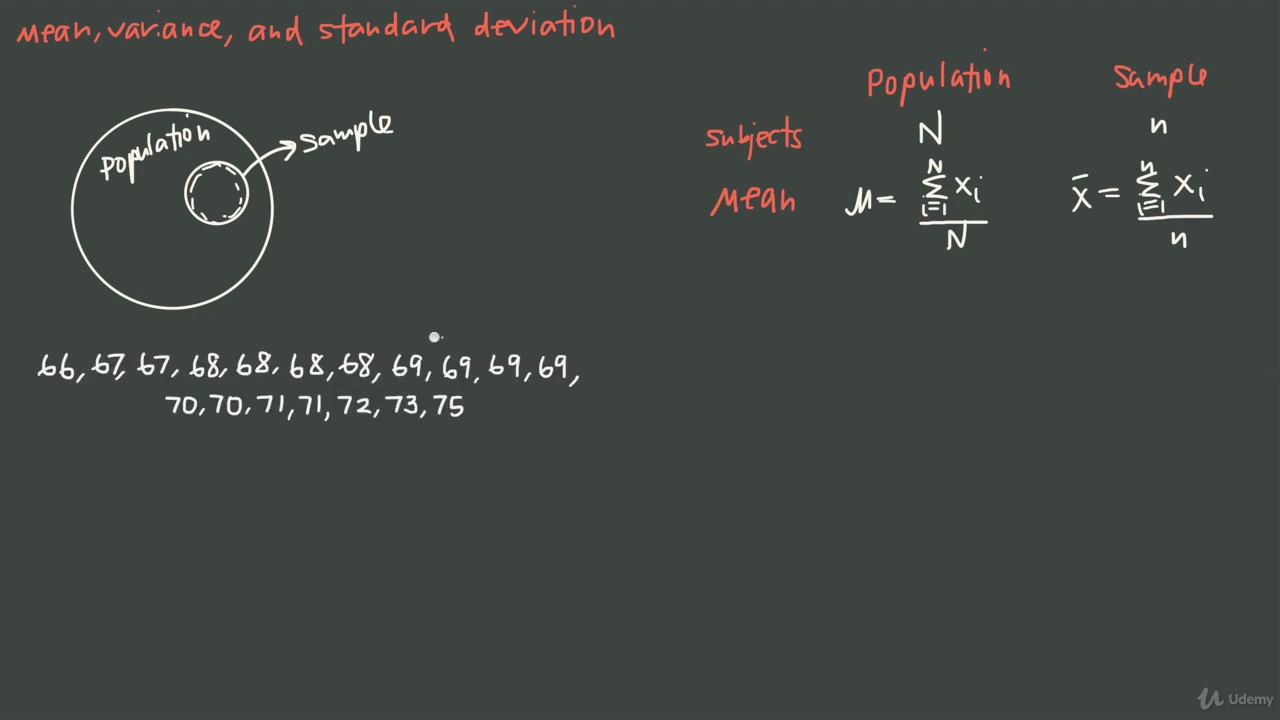 mean, variance, and standard deviation
Population Sample
population
sample
subjects N n
Mean μ = \frac{\sum_{i=1}^{N} x_i}{N} x̄ = \frac{\sum_{i=1}^{n} x_i}{n}
66, 67, 67, 68, 68, 68, 68, 69, 69, 69, 69,
70, 70, 71, 71, 72, 73, 75
Udemy